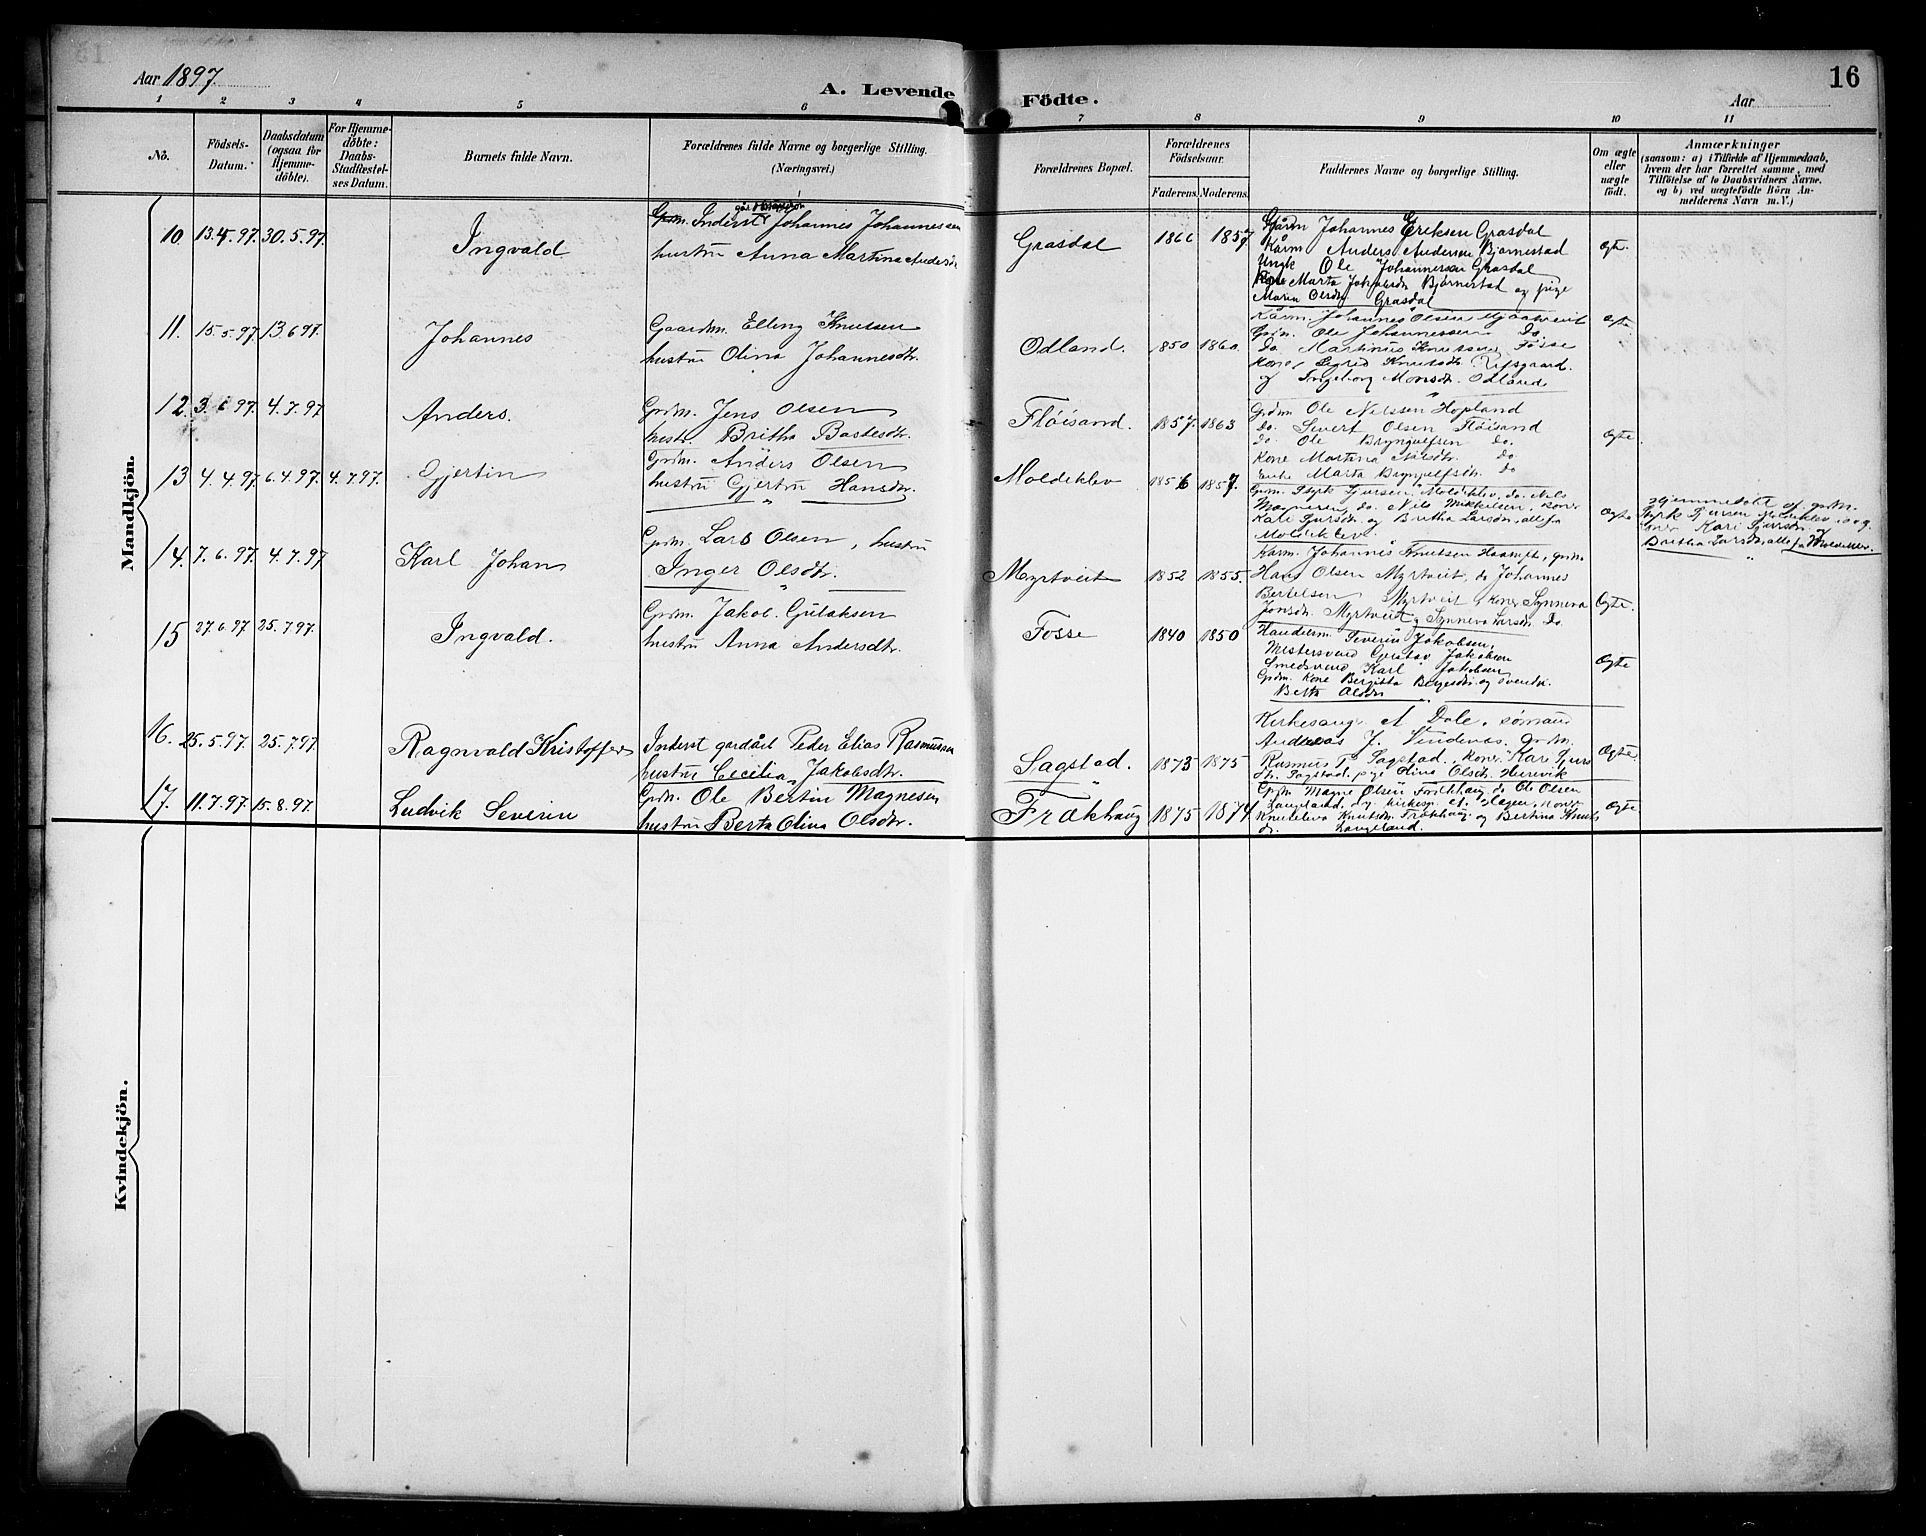 Aar 1897.
A. Levende
Födte.
Aar
16
1 2 3 4 5 6 7 8 9 10 11
No.
Födsels-Datum.
Daabsdatum (ogsaa for Hjemme-döbte).
For Hjemme-döbte: Daabs-Stadfæstel-ses Datum.
Barnets fulde Navn.
Forældrenes fulde Navne og borgerlige Stilling.
(Næringsvei.)
Forældrenes Bopæl.
Forældrenes Födselsaar.
Faderens.
Moderens.
Faddernes Navne og borgerlige Stilling.
Om ægte eller uægte födt.
Anmærkninger
(saasom: a) i Tilfælde af Hjemmedaab,
hvem der har forrettet samme, med
Tilföielse af to Daabsvidners Navne.
og b) ved uægtefödte Börn An-
melderens Navn m. V.)
Mandkjön.
10. 13.4.97. 30.5.97. Ingvald
Inderst Johannes Johannessen
hustru Anna Martina Andersd
Grasdal 1866 1857
Gårdm Johannes Eriksen Grasdal
Kårm Anders Andersen Bjørnestad
Ungk Ole Johannesen Grasdal
Kone Marta Jakobsdr Bjørnestad og pige
Maren Olsdr Grasdal
Ægte.
11. 15.5.97. 13.6.97. Johannes
Gaardm. Elling Knutsen
hustru Olina Johannesdtr.
Odland. 1850 1860.
Kårm. Johannes Olsen
Grdm. Ole Johannessen Do
Do Martinus Knutsen, Fosse
Kone, Sigrid Knutsdtr.
og Ingeborg Monsdr. Odland
Ægte
12. 3.6.97. 4.7.97 Anders.
Grdm. Jens Olsen
hustr. Britha Bastesdtr.
Fløisand. 1857. 1863
Grdm Ole Nilssen Hopland
do. Severt Olsen Fløisand
do. Ole Bryngelfsen do.
Kone Martina Nilsdtr. do
Enke Marta do
Ægte.
13 4.4.97. 6.4.97. 4.7.97. Gjertin
Grdm. Anders Olsen
hustru Gjertru Hansdtr.
Moldeklev 1856 1857.
Grdm. Styrk Sjursen, Moldeklev, do. Nils
Magnesen, do. Nils Mikkelsen, koner
Kari Sjursdr. og Britha Larsdr, alle fra
Moldeklev
Ægte
Hjemmedøbt af grdm.
Styrk Sjursen Moldeklev
koner Kari Sjursdtr. og
Britha Larsdtr, alle fra Moldeklev.
14. 7.6.97. 4.7.97 Karl Johan
Grdm. Lars Olsen, hustru
Inger Olsdtr.
Myrtveit 1852 1855.
Kårm. Johannes Knutsen
Hans Olsen Myrtveit, do Johannes
Bertelsen Myrtveit, koner Synneva
Jonsdr. Myrtveit og Synneva Larsdr Do
Ægte.
15 27.6.97 25.7.97. Ingvald.
Grdm. Jakob Gulaksen
hustru Anna Andersdtr.
Fosse 1840 1850
Handelsm. Severin Jakobsen,
Mestersvend Gustav Jakobsen
Smedsvend Karl Jakobsen
Grdm. kone Bergitta Børgesdr. og
Berta Olsdtr
Ægte
16. 25.5.97. 25.7.97. Ragnvald Kristoffer
Inderst Peder Elias Rasmussen
hustru Cecilia Jakobsdtr.
Sagstad. 1873 1875
Kirkesang. A Dale, sømand
Andreas J. Vindenes. Grdm.
Rasmus T. Sagstad, Kone, Kari Sjurs
dr. Sagstad, pige Olina Olsdr.
Ægte
17. 11.7.97. 15.8.97. Ludvik Severin
Grdm. Ole Bertin Magnesen
hustru Berta Olina Olsdtr.
Frækhaug 1875 1874
Grdm Magne Olsen Frækhaug, do Ole Olsen
Langeland, kirkes. A. Hagen, koner
Knutsdr. Frækhaug og Bertina Knuts
dr. Langeland.
Ægte
Kvindekjön.